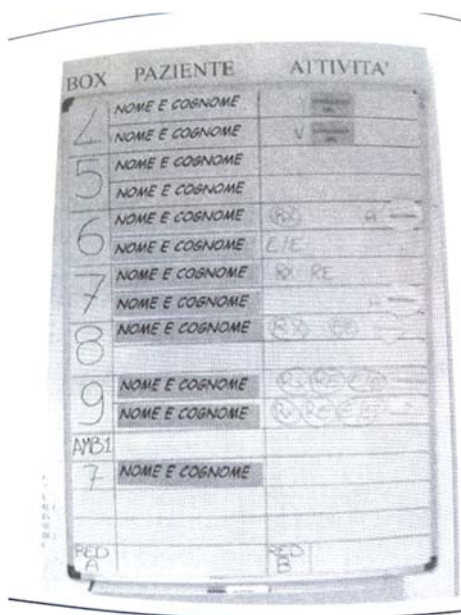 BOX PAZIENTE ATTIVITA'
4 NOME E COGNOME
NOME E COGNOME V
5 NOME E COGNOME
NOME E COGNOME
6 NOME E COGNOME RX A
NOME E COGNOME E/E
7 NOME E COGNOME RX RE
NOME E COGNOME A
8 NOME E COGNOME RX
9 NOME E COGNOME RX RE
NOME E COGNOME RX RE
AMB1
7 NOME E COGNOME
RED A RED B